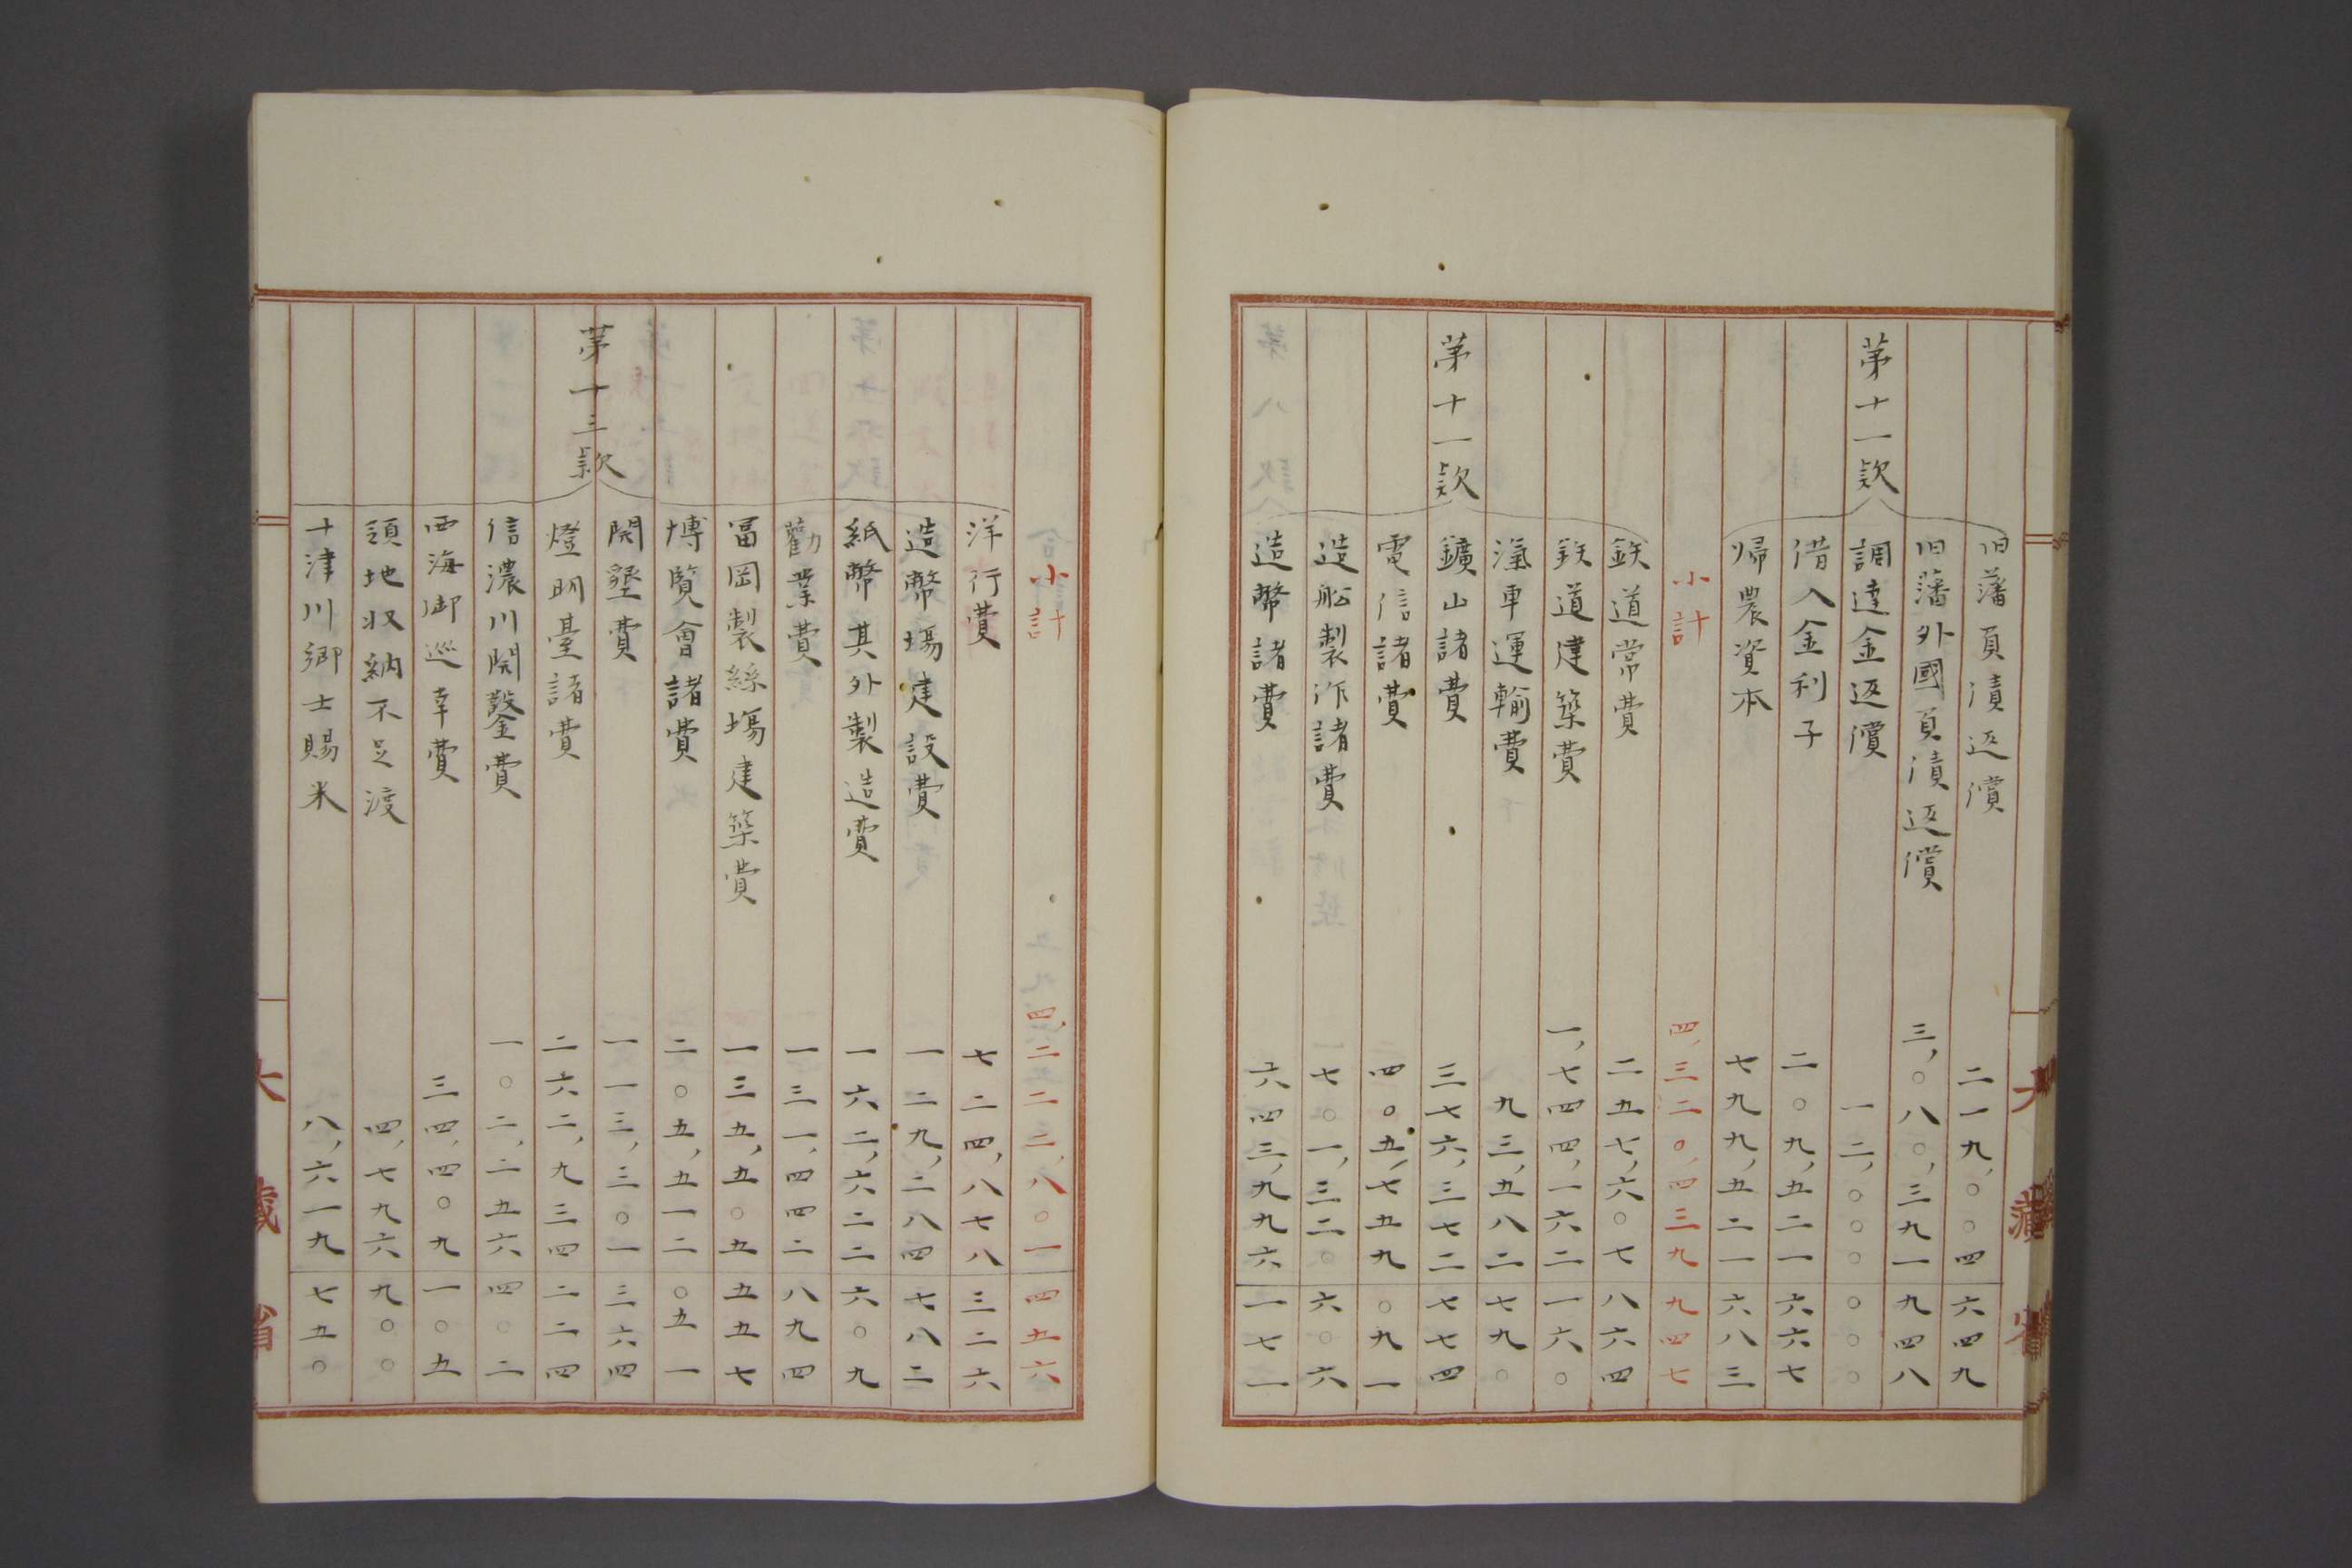 旧藩負債返償 二一九,〇〇四 六四九
旧藩外國負債返償 三,〇八〇,三九一 九四八
第十一款 調達金返償 一二,〇〇〇 〇〇〇
借入金利子 二〇九,五二一 六六七
帰農資本 七九九,五二一 六八三
小計 四,三二〇,四三九 九四七
鉄道常費 二五七,六〇七 八六四
鉄道建築費 一,七四四,一六二 一六〇
滊車運輸費 九三,五八二 七九〇
第十一款 鑛山諸費 三七六,三七二 七七四
電信諸費 四〇五,七五九 〇九一
造船製作諸費 七〇一,三二〇 六〇六
造幣諸費 六四三,九九六 一七一
小計 四,二二二,八〇一 四五六
洋行費 七二四,八七八 三二六
造幣塲建設費 一二九,二八四 七八二
紙幣其外製造費 一六二,六二二 六〇九
勸業費 一三一,四四二 八九四
冨岡製絲塲建築費 一三五,五〇五 五五七
博覧會諸費 二〇五,五一二 〇五一
第十三款 開墾費 一一三,三〇一 三六四
燈明臺諸費 二六二,九三四 二二四
信濃川開鑿費 一〇二,二五六 四〇二
西海御巡幸費 三四,四〇九 一〇五
領地収納不足渡 四,七九六 九〇〇
十津川郷士賜米 八,六一九 七五〇
大藏省